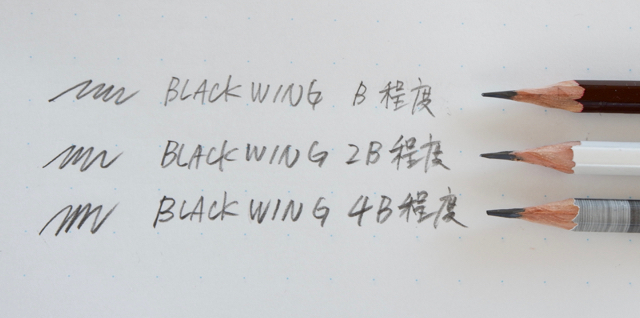 BLACKWING B程度
BLACKWING 2B程度
BLACKWING 4B程度